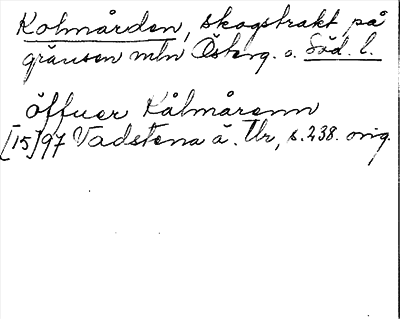 Kolmården, skogstrakt på
gränsen mln Österg. o. Söd. l.
öffuer Kålmårenn
[15]97 Vadstena ä. Ur, s. 238. orig.